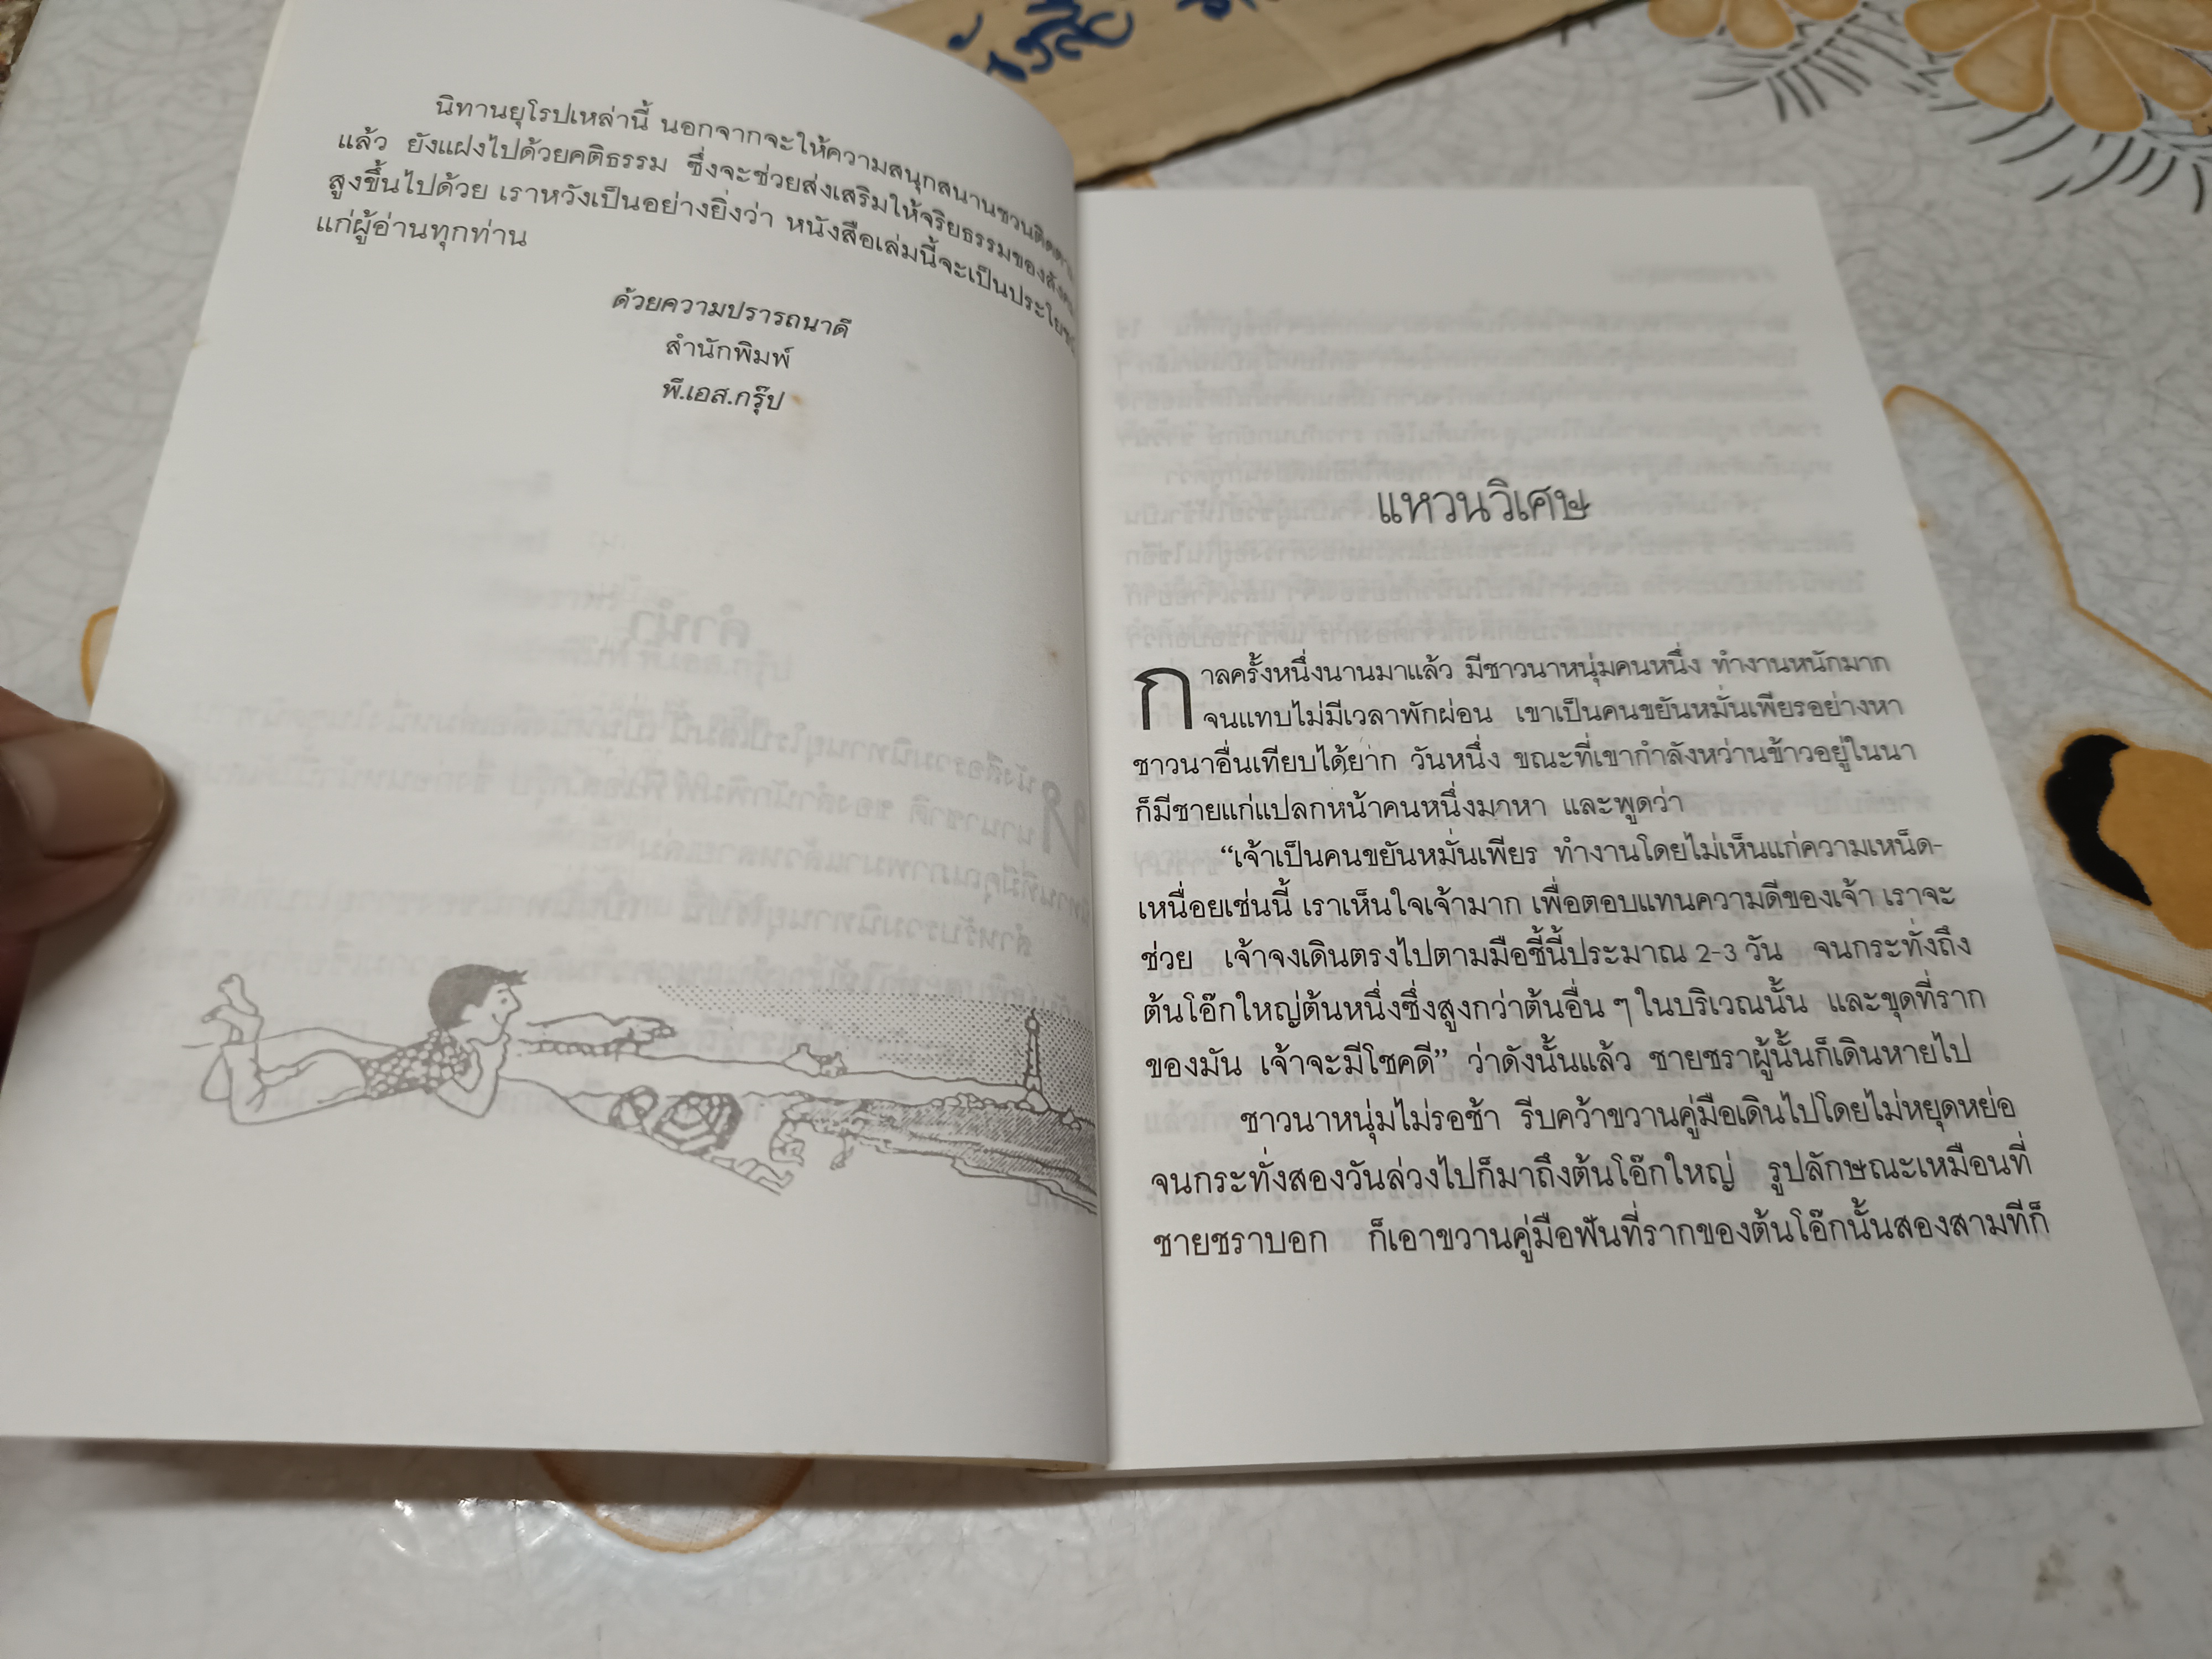 นิทานยุโรปเหล่านี้ นอกจากจะให้ความสนุกสนานชวนติดตาม
แล้ว ยังแฝงไปด้วยคติธรรม ซึ่งจะช่วยส่งเสริมให้จริยธรรมของสังคม
สูงขึ้นไปด้วย เราหวังเป็นอย่างยิ่งว่า หนังสือเล่มนี้จะเป็นประโยชน์
แก่ผู้อ่านทุกท่าน
ด้วยความปรารถนาดี
สำนักพิมพ์
พี.เอส.กรุ๊ป
แหวนวิเศษ
กาลครั้งหนึ่งนานมาแล้ว มีชาวนาหนุ่มคนหนึ่ง ทำงานหนักมาก
จนแทบไม่มีเวลาพักผ่อน เขาเป็นคนขยันหมั่นเพียรอย่างหา
ชาวนาอื่นเทียบได้ยาก วันหนึ่ง ขณะที่เขากำลังหว่านข้าวอยู่ในนา
ก็มีชายแก่แปลกหน้าคนหนึ่งมาหา และพูดว่า
“เจ้าเป็นคนขยันหมั่นเพียร ทำงานโดยไม่เห็นแก่ความเหน็ด-
เหนื่อยเช่นนี้ เราเห็นใจเจ้ามาก เพื่อตอบแทนความดีของเจ้า เราจะ
ช่วย เจ้าจงเดินตรงไปตามมือชี้นี้ประมาณ 2-3 วัน จนกระทั่งถึง
ต้นโอ๊กใหญ่ต้นหนึ่งซึ่งสูงกว่าต้นอื่น ๆ ในบริเวณนั้น และขุดที่ราก
ของมัน เจ้าจะมีโชคดี” ว่าดังนั้นแล้ว ชายชราผู้นั้นก็เดินหายไป
ชาวนาหนุ่มไม่รอช้า รีบคว้าขวานคู่มือเดินไปโดยไม่หยุดหย่อ
จนกระทั่งสองวันล่วงไปก็มาถึงต้นโอ๊กใหญ่ รูปลักษณะเหมือนที่
ชายชราบอก ก็เอาขวานคู่มือฟันที่รากของต้นโอ๊กนั้นสองสามทีก็